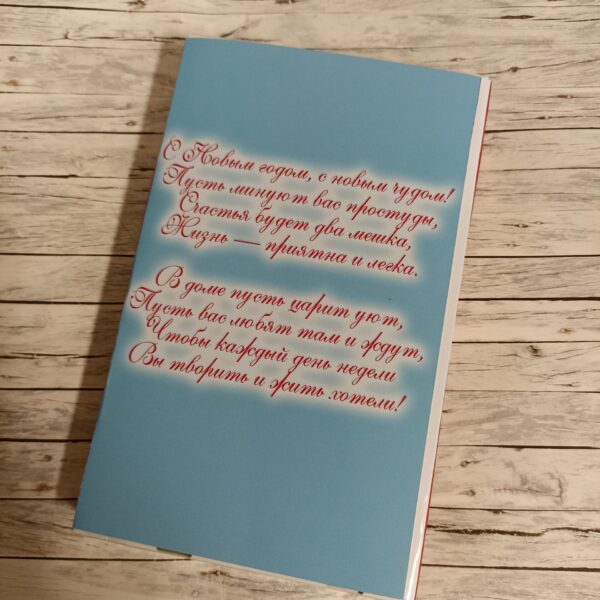 С Новым годом, с новым чудом!
Пусть минуют вас простуды,
Счастья будет два мешка,
Жизнь — приятна и легка.
В доме пусть царит уют,
Пусть вас любят там и ждут,
Чтобы каждый день недели
Вы творить и жить хотели!